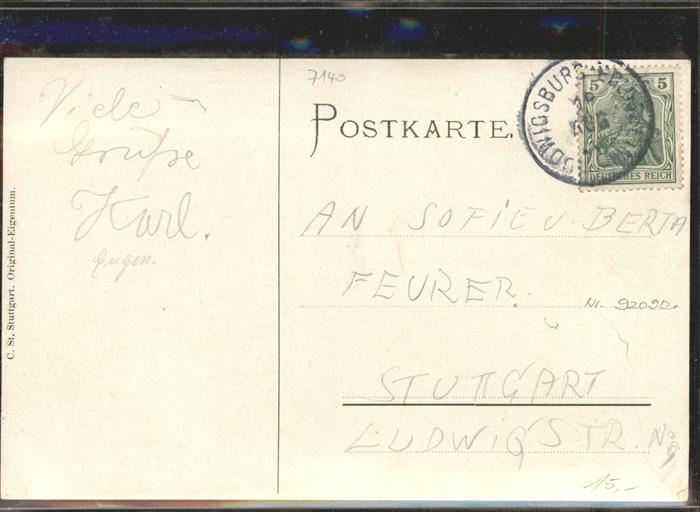 Viele
Grüße
Karl.
Eugen.
C. St. Stuttgart. Original-Eigentum.
7140
POSTKARTE.
LUDWIGSBURG
5 5
DEUTSCHES REICH
AN SOFIE U. BERTA
FEURER.
Nr. 92092
STUTTGART
LUDWIGSTR. No 9
15,-